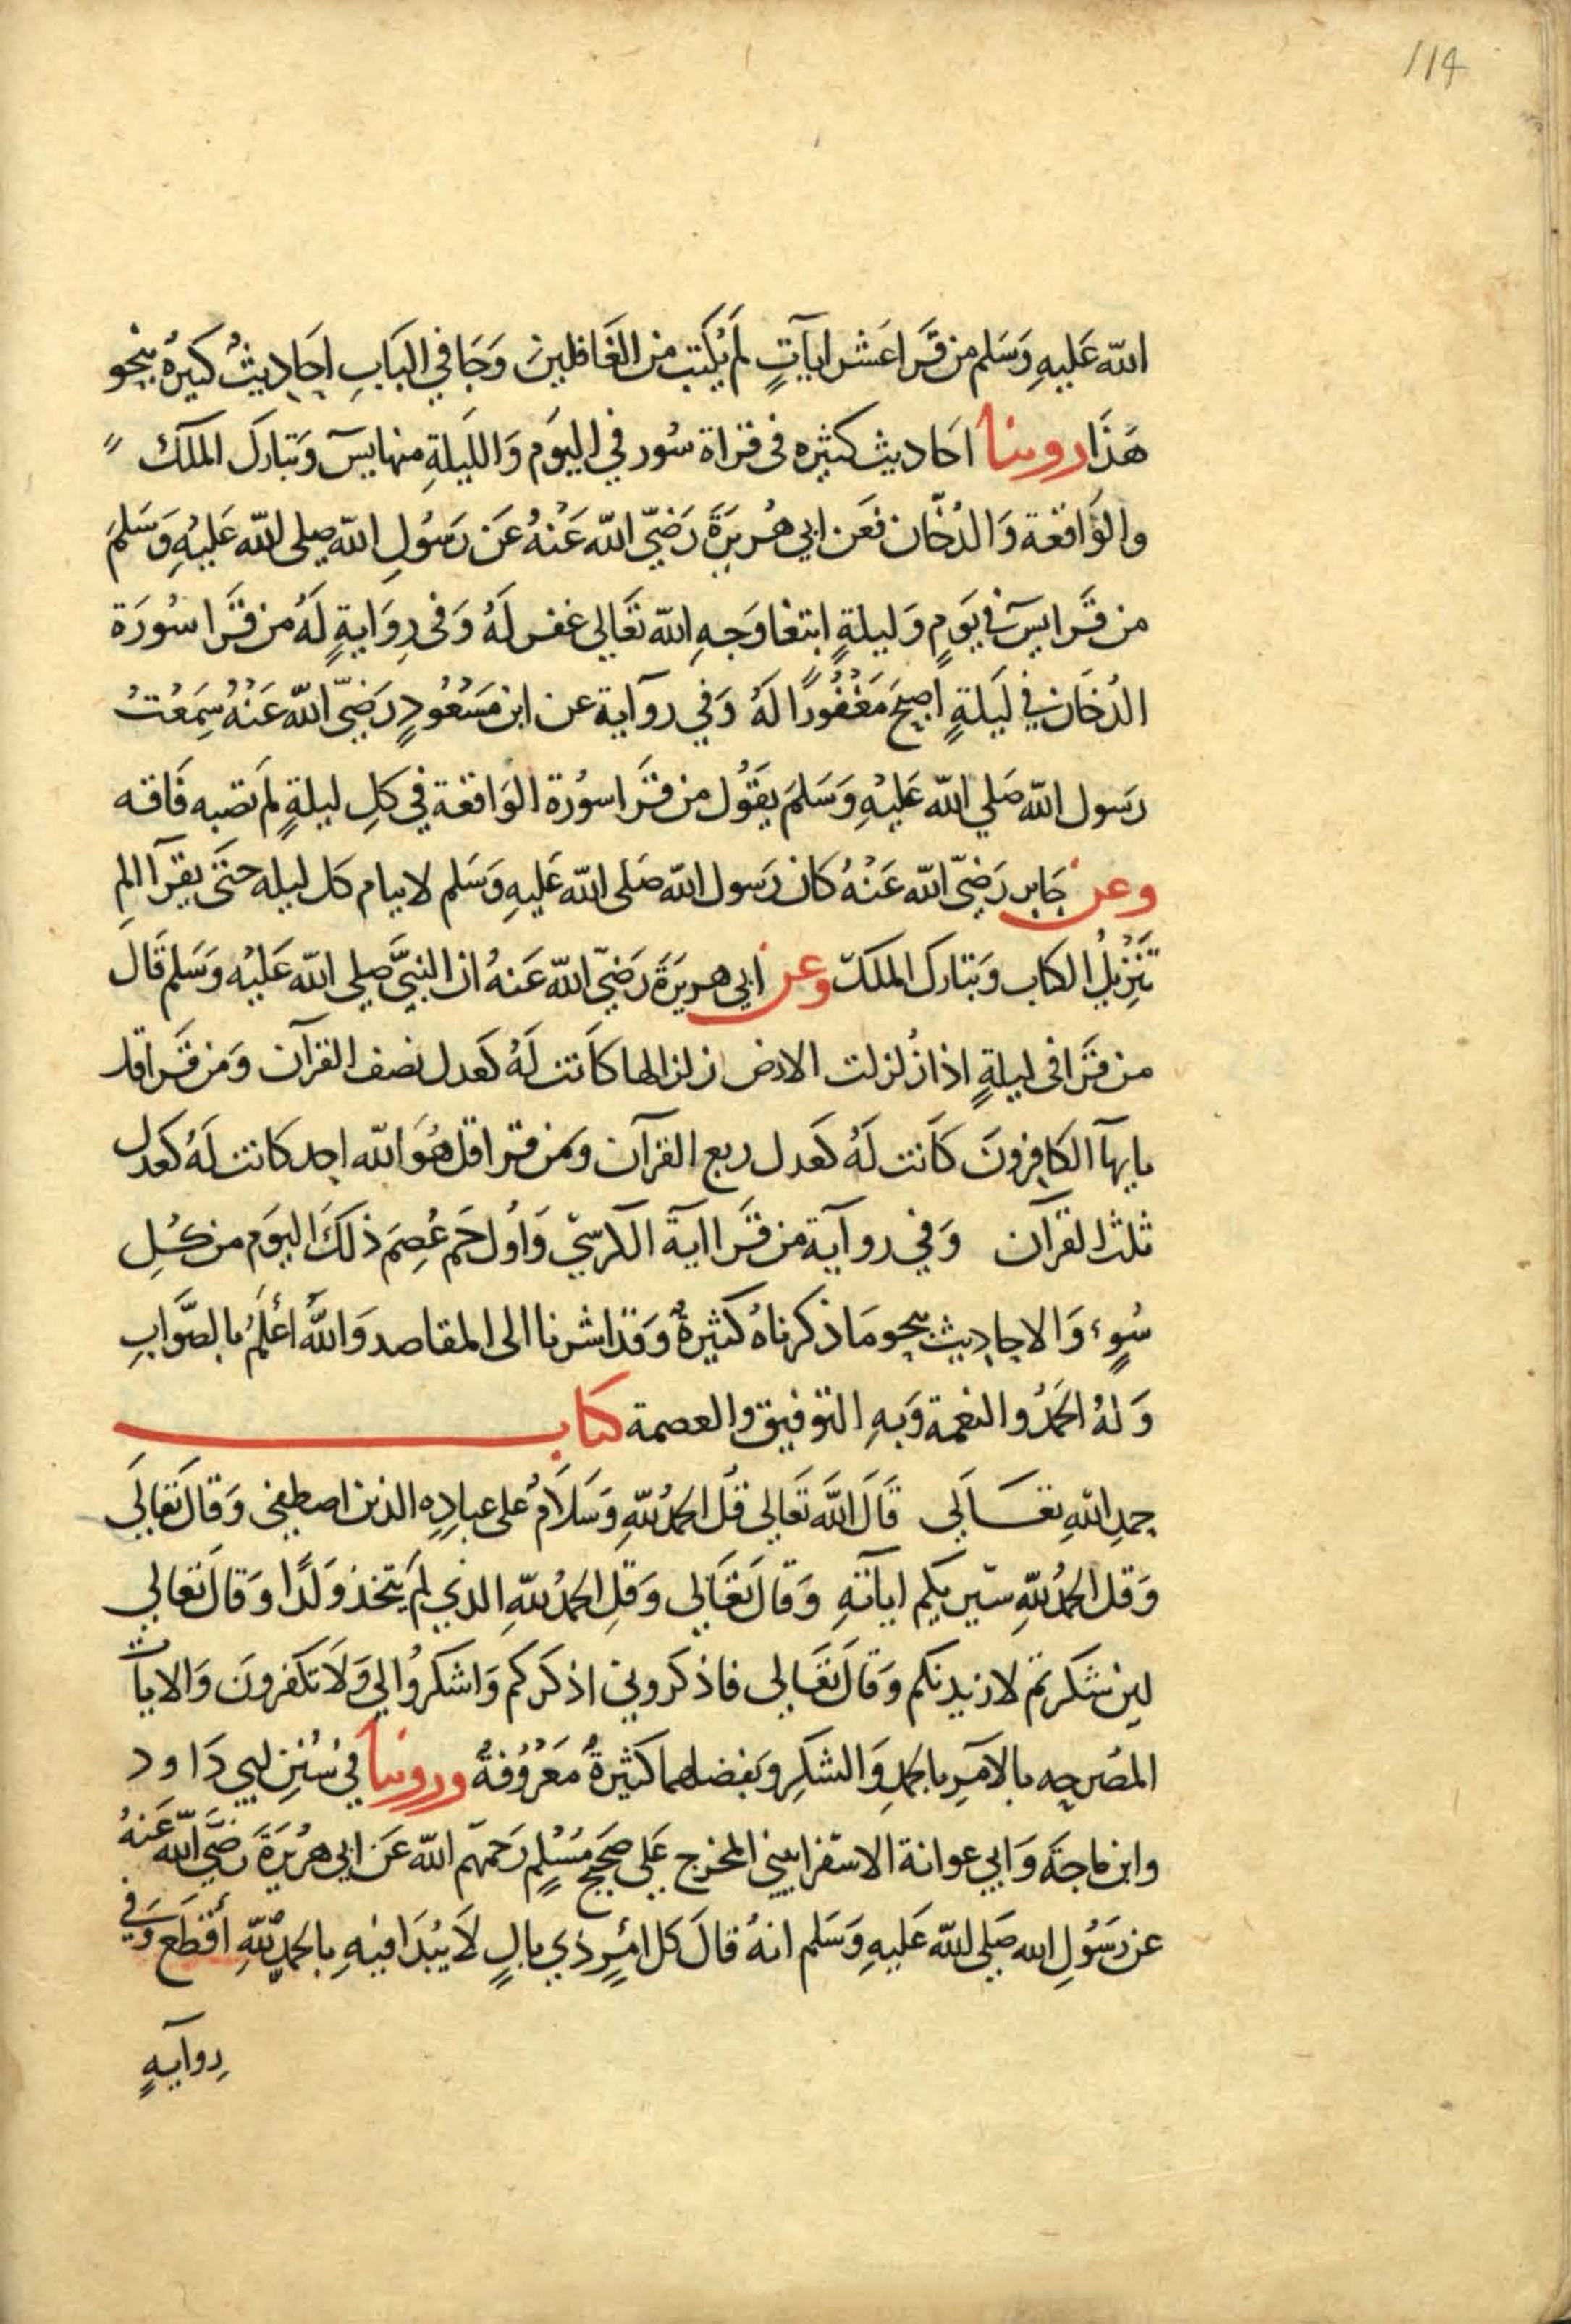 114
الله عَليهِ وَسَلم من قَرَا عَشر ايآتٍ لَم يُكتب من الغَافلين وَجَا في البَابِ احَاديثُ كثيرةُ بنحو
هَذَا روينا احَاديث كثيره فى قراة سُور في اليوَم وَالليَلةِ منها يسَ وَتبارَك الملك
والوَاقعَة وَالدُخَان فعَن ابي هُريرَةَ رَضيَ الله عَنْهُ عَن رَسُولِ الله صلى الله عَليْهِ وَسَلمَ
من قَرَا يسَ في يَومٍ وَليلةٍ ابتغا وَجهِ الله تعَالى غفر لَهُ وَفى رِوَايةٍ لَهُ من قَرَا سُورَة
الدُخَان في لَيلةٍ اصبحَ مَغْفُورًا لَهُ وَفي روآية عن ابن مَسْعُودٍ رَضيَ الله عَنْهُ سَمِعْتُ
رَسول الله صَلي الله عَليْهِ وَسَلمَ يقَوُل من قرَا سوُرة الوَاقعَة في كلِ ليلةٍ لَم تصبه فَاقه
وعن جَابر رَضيَ الله عَنْهُ كان رَسول الله صَلى الله عَليهِ وَسَلم لا ينام كل ليله حتىَ يقرَآ الم
تَنْزيلُ الكتاب وَتبَارك الملك وعن ابي هريرَةَ رَضيَ الله عَنهُ ان النبيَّ صلي الله عَليْه وَسَلم قَال
من قرَا فى ليلةٍ اذا زُلزلت الارض زلزالها كاَنت لَهُ كعَدل نصف القرآن وَمن قَرَا قل
يايهآ الكافِرونَ كاَنت لَهُ كعَدل ربع القرآن وَمن قرا قل هُوَ الله احد كانت لَهُ كعَدل
ثلث القرآن وَفي روآية من قَرَا اية الكرسيّ وَاوُل حَم عُصِمَ ذلكَ اليوَم من كُلِ
سُوءٍ وَالاحاديث بنحو مَا ذكرناهُ كثيرةٌ وَقد اشرنا الى المقاصد وَاللهُ أعْلَمُ بالصَّوابِ
وَلهُ الحَمْدُ والنعمة وَبهِ التوفيق والعصمة كتاب
حمدِ اللهِ تعَالَي قَالَ اللهَ تَعَالي قُل الحَمدُ للهِ وَسَلَامُ على عبادِه الذين اصطفي وَقالَ تعَالَي
وَقل الحمدُ للهِ سَيريكم اياتهِ وَقالَ تعَالي وَقلِ الحمدُ للهِ الذي لَم يتخذ وَلَدًا وَقالَ تعالي
لين شكرتم لازيدنكم وَقالَ تعَالي فاذكروني اذكركم وَاشكرُوا لي وَلَا تكفرونَ وَالايات
المصَرحه بالامَرِ بالحمدِ وَالشكرِ وَبفضلهما كثيرةٌ مَعْرُوُفةٌ وروينا في سُننِ ابي دَاود
وابن ماجَة وَابي عوانة الاسَفراييني المخرج عَلى صَحيحِ مُسْلمٍ رَحمَهم الله عَن ابي هُريْرَةَ رَضيَ الله عَنهُ
عن رَسُولِ الله صَلي الله عَليهِ وَسَلم انهُ قالَ كل امْرٍ ذي بالٍ لَا يُبْدَا فيْهِ بالحمدِ للهِ أقطَع وَفي
رِوآيهٍ